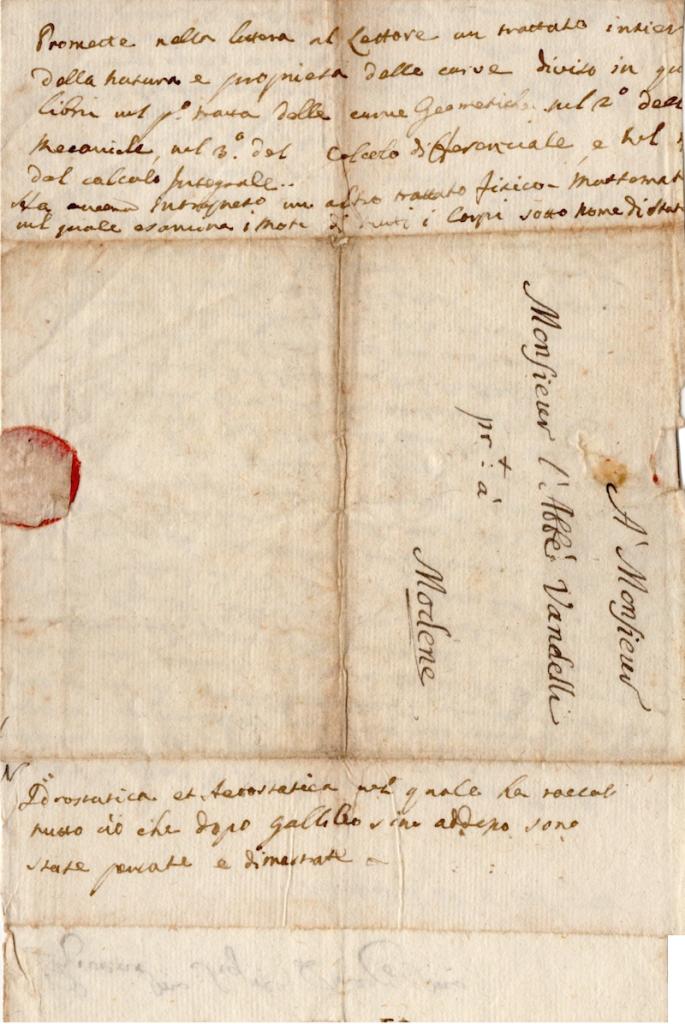 Promette nella lettera al Lettore un trattato intier
della natura e proprietà delle curve diviso in qu
libri nel p.º tratta delle curve Geometriche nel 2º delle
mecaniche, nel 3º. del Calcolo differenziale, e nel
del calcolo Integrale..
Ha un altro trattato fisico-Mattemat
nel quale esamina i moti di tutti i Corpi sotto nome di
A' Monsieur
Monsieur l'Abbé Vandelli
pr.t à
Modene
Idrostatica et Aerostatica nel quale ha raccolt
tutto ciò che dopo Gallileo sin addesso sono
state pensate e dimostrate